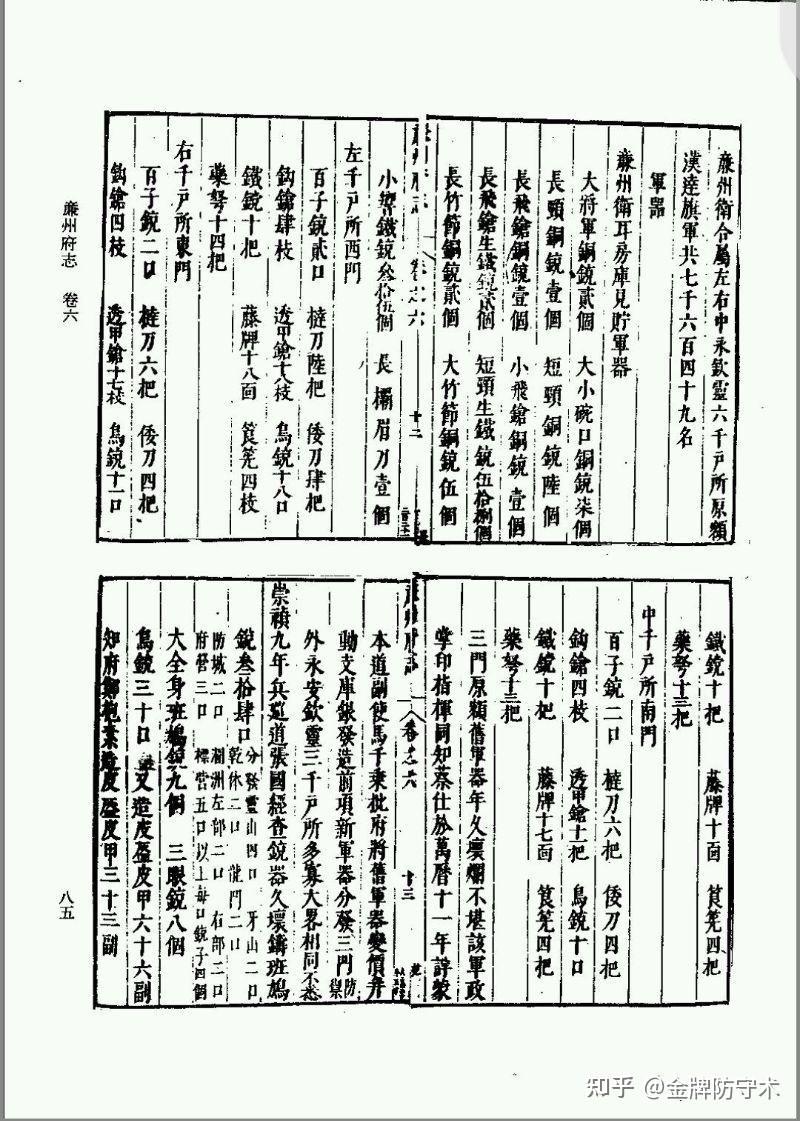 廉州衛合屬左右中永欽靈六千戶所原額
漢達旗軍共七千六百四十九名
軍器
廉州衛耳房庫見貯軍器
大將軍銅銃貳個　大小碗口銅銃柒個
長頸銅銃壹個　短頸銅銃陸個
長飛鎗銅銃壹個　小飛鎗銅銃壹個
長飛鎗生鐵銃貳個　短頸生鐵銃伍拾捌個
長竹節銅銃貳個　大竹節銅銃伍個
廉州府志　卷之六　十二
小響鐵銃叁拾伍個　長欛眉刀壹個
左千戶所西門
百子銃貳口　㨫刀陸把　倭刀肆把
鈎鎗肆枝　透甲鎗十八枝　鳥銃十八口
鐵銃十把　藤牌十八面　筤筅四枝
藥弩十四把
右千戶所東門
百子銃二口　㨫刀六把　倭刀四把
鈎鎗四枝　透甲鎗十七枝　鳥銃十一口
鐵銃十把　藤牌十面　筤筅四把
藥弩十三把
中千戶所南門
百子銃二口　㨫刀六把　倭刀四把
鈎鎗四枝　透甲鎗十一把　鳥銃十口
鐵銃十把　藤牌十七面　筤筅四把
藥弩十三把
三門原額舊軍器年久壞爛不堪該軍政
掌印指揮同知蔡仕於萬曆十一年詳蒙
廉州府志　卷之六　十三
本道副使馬千乘批府將舊軍器變價幷
動支庫銀發造前項新軍器分發三門防禦
外永安欽靈三千戶所多寡大畧相同不悉
崇禎九年兵巡道張國經查銃器久壞鑄班鳩
銃叁拾肆口　分發靈山四口　牙山二口
乾休二口　龍門二口
防城二口　涠洲左部二口　右部二口
府營三口　標營五口以上每口銃子四個
大全身班鳩銃九個　三眼銃八個
鳥銃三十口　又造皮盔皮甲六十六副
知府鄭抱素造皮盔皮甲三十三副
廉州府志　卷六
八五
知乎 @金牌防守术